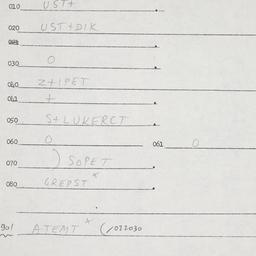 010 UST+
020 UST+DIK
021
030 O
040 Z+IPET
041 +
050 S+LUKERCT
060 O 061 O
070 ) SOPET
080 GREPST x
901 ATEMT x (/022030